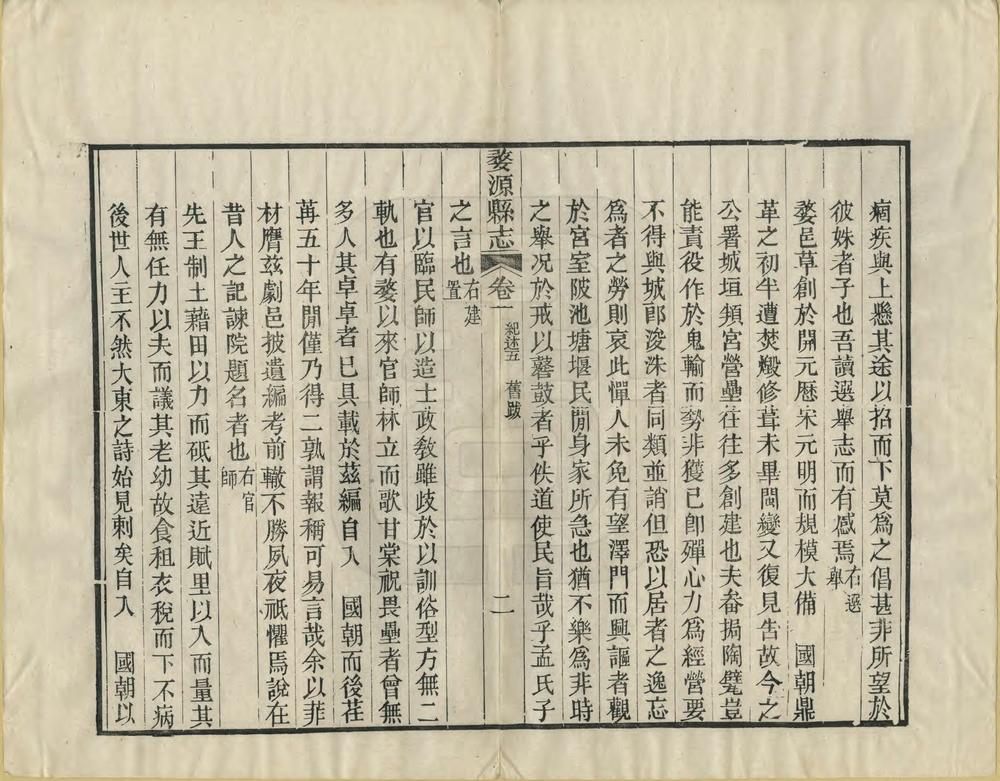 痼疾與上懸其途以招而下莫爲之倡甚非所望於
彼姝者子也吾讀選舉志而有感焉右選舉
婺邑草創於開元歷宋元明而規模大備　國朝鼎
革之初半遭焚燬修葺未畢閩變又復見告故今之
公署城垣頖宮營壘往往多創建也夫畚挶陶甓豈
能責役作於鬼輸而勢非獲已卽殫心力爲經營要
不得與城郎浚洙者同類並誚但恐以居者之逸忘
爲者之勞則哀此憚人未免有望澤門而興謳者觀
於宮室陂池塘堰民閒身家所急也猶不樂爲非時
之舉况於戒以鼛鼓者乎佚道使民旨哉乎孟氏子
之言也右建置
婺源縣志　卷一　紀述五　舊跋　二
官以臨民師以造士政敎雖歧於以訓俗型方無二
軌也有婺以來官師林立而歌甘棠祝畏壘者曾無
多人其卓卓者已具載於茲編自入　國朝而後荏
苒五十年閒僅乃得二孰謂報稱可易言哉余以菲
材膺茲劇邑披遺編考前轍不勝夙夜祗懼焉說在
昔人之記諫院題名者也右官師
先王制土藉田以力而砥其遠近賦里以入而量其
有無任力以夫而議其老幼故食租衣稅而下不病
後世人主不然大東之詩始見刺矣自入　國朝以